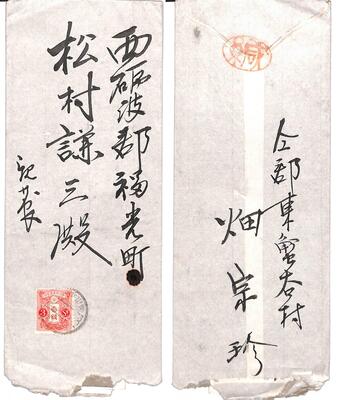 西礪波郡福光町
松村謙三殿
仝郡東蟹谷村
畑宗珍